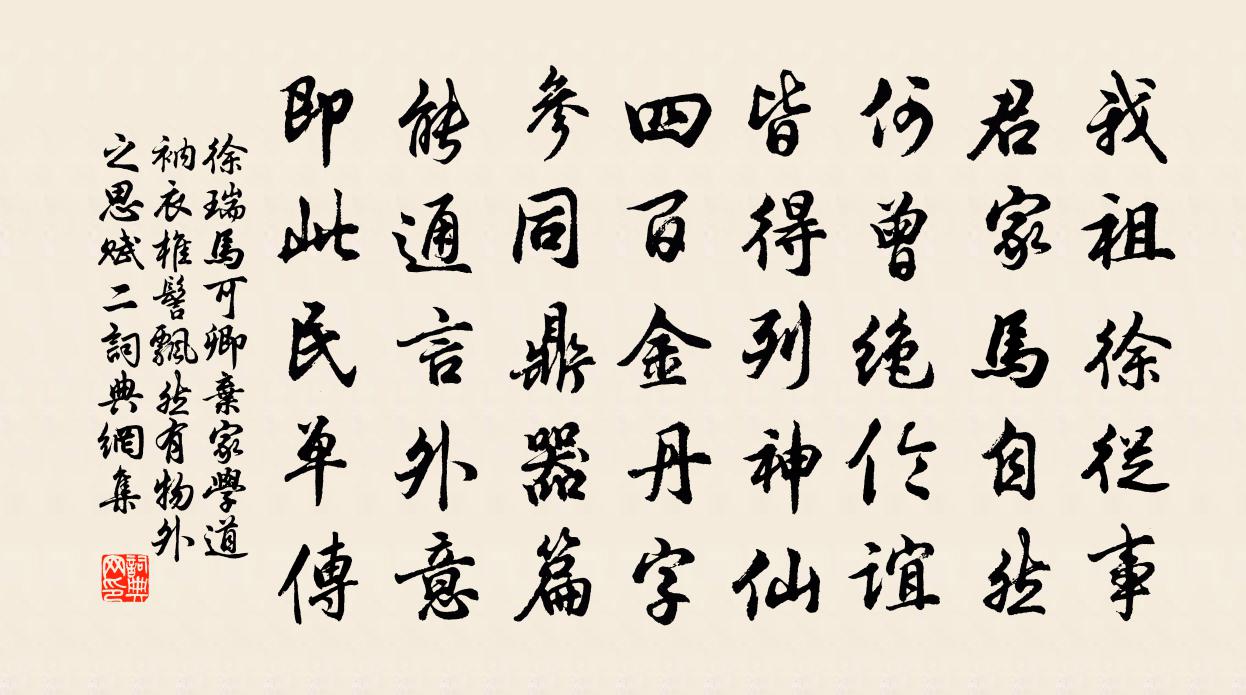 我祖徐從事
君家馬自然
何曾絕倫誼
皆得列神仙
四百金丹字
參同鼎器篇
能通言外意
即此民單傳
徐瑞馬可卿棄家學道
衲衣椎髻飄然有物外
之思賦二詞典網集
詞典
网印